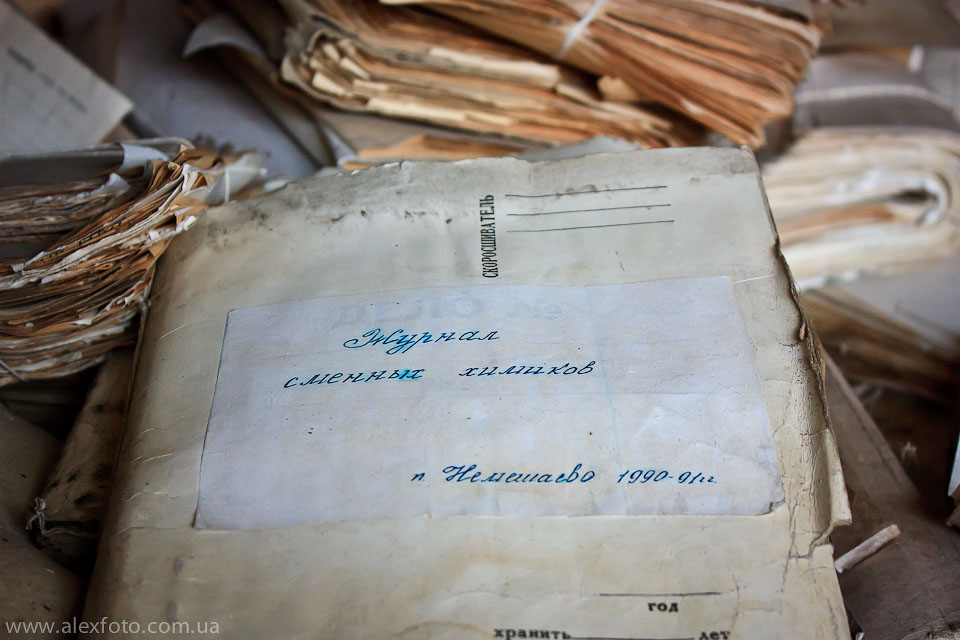 СКОРОСШИВАТЕЛЬ
Журнал
сменных химиков
п Немешаево 1990-91гг
год
хранить лет
www.alexfoto.com.ua